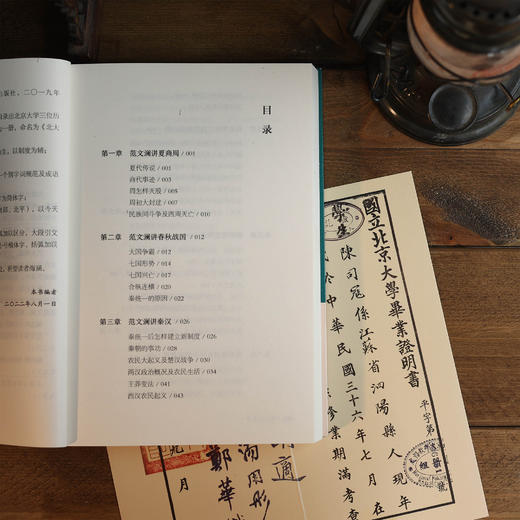 出版社，二〇一九年
目录出北京大学三位历
一册，命名为《北大
以制度为辅；
个别字词规范及成语
简体字；
北平），以今天
加以区分，大段引文
号楷体字，括弧加以
祈望读者海涵。
本书编者
二〇二二年八月一日
目录
第一章 范文澜讲夏商周 / 001
夏代传说 / 001
商代事迹 / 003
周怎样灭殷 / 005
周初大封建 / 007
民族间斗争及西周灭亡 / 010
第二章 范文澜讲春秋战国 / 012
大国争霸 / 012
七国形势 / 014
七国兴亡 / 017
合纵连横 / 020
秦统一的原因 / 022
第三章 范文澜讲秦汉 / 026
秦统一后怎样建立新制度 / 026
秦朝的事功 / 028
农民大起义及楚汉战争 / 030
两汉政治概况及农民生活 / 034
王莽变法 / 041
西汉农民起义 / 043
國立北京大學畢業證明書
平字第
號
學生
陳司寇係江蘇省泗陽縣人現年
於中華民國三十六年七月在
修業期滿考查
適
周彤
鄭華
月